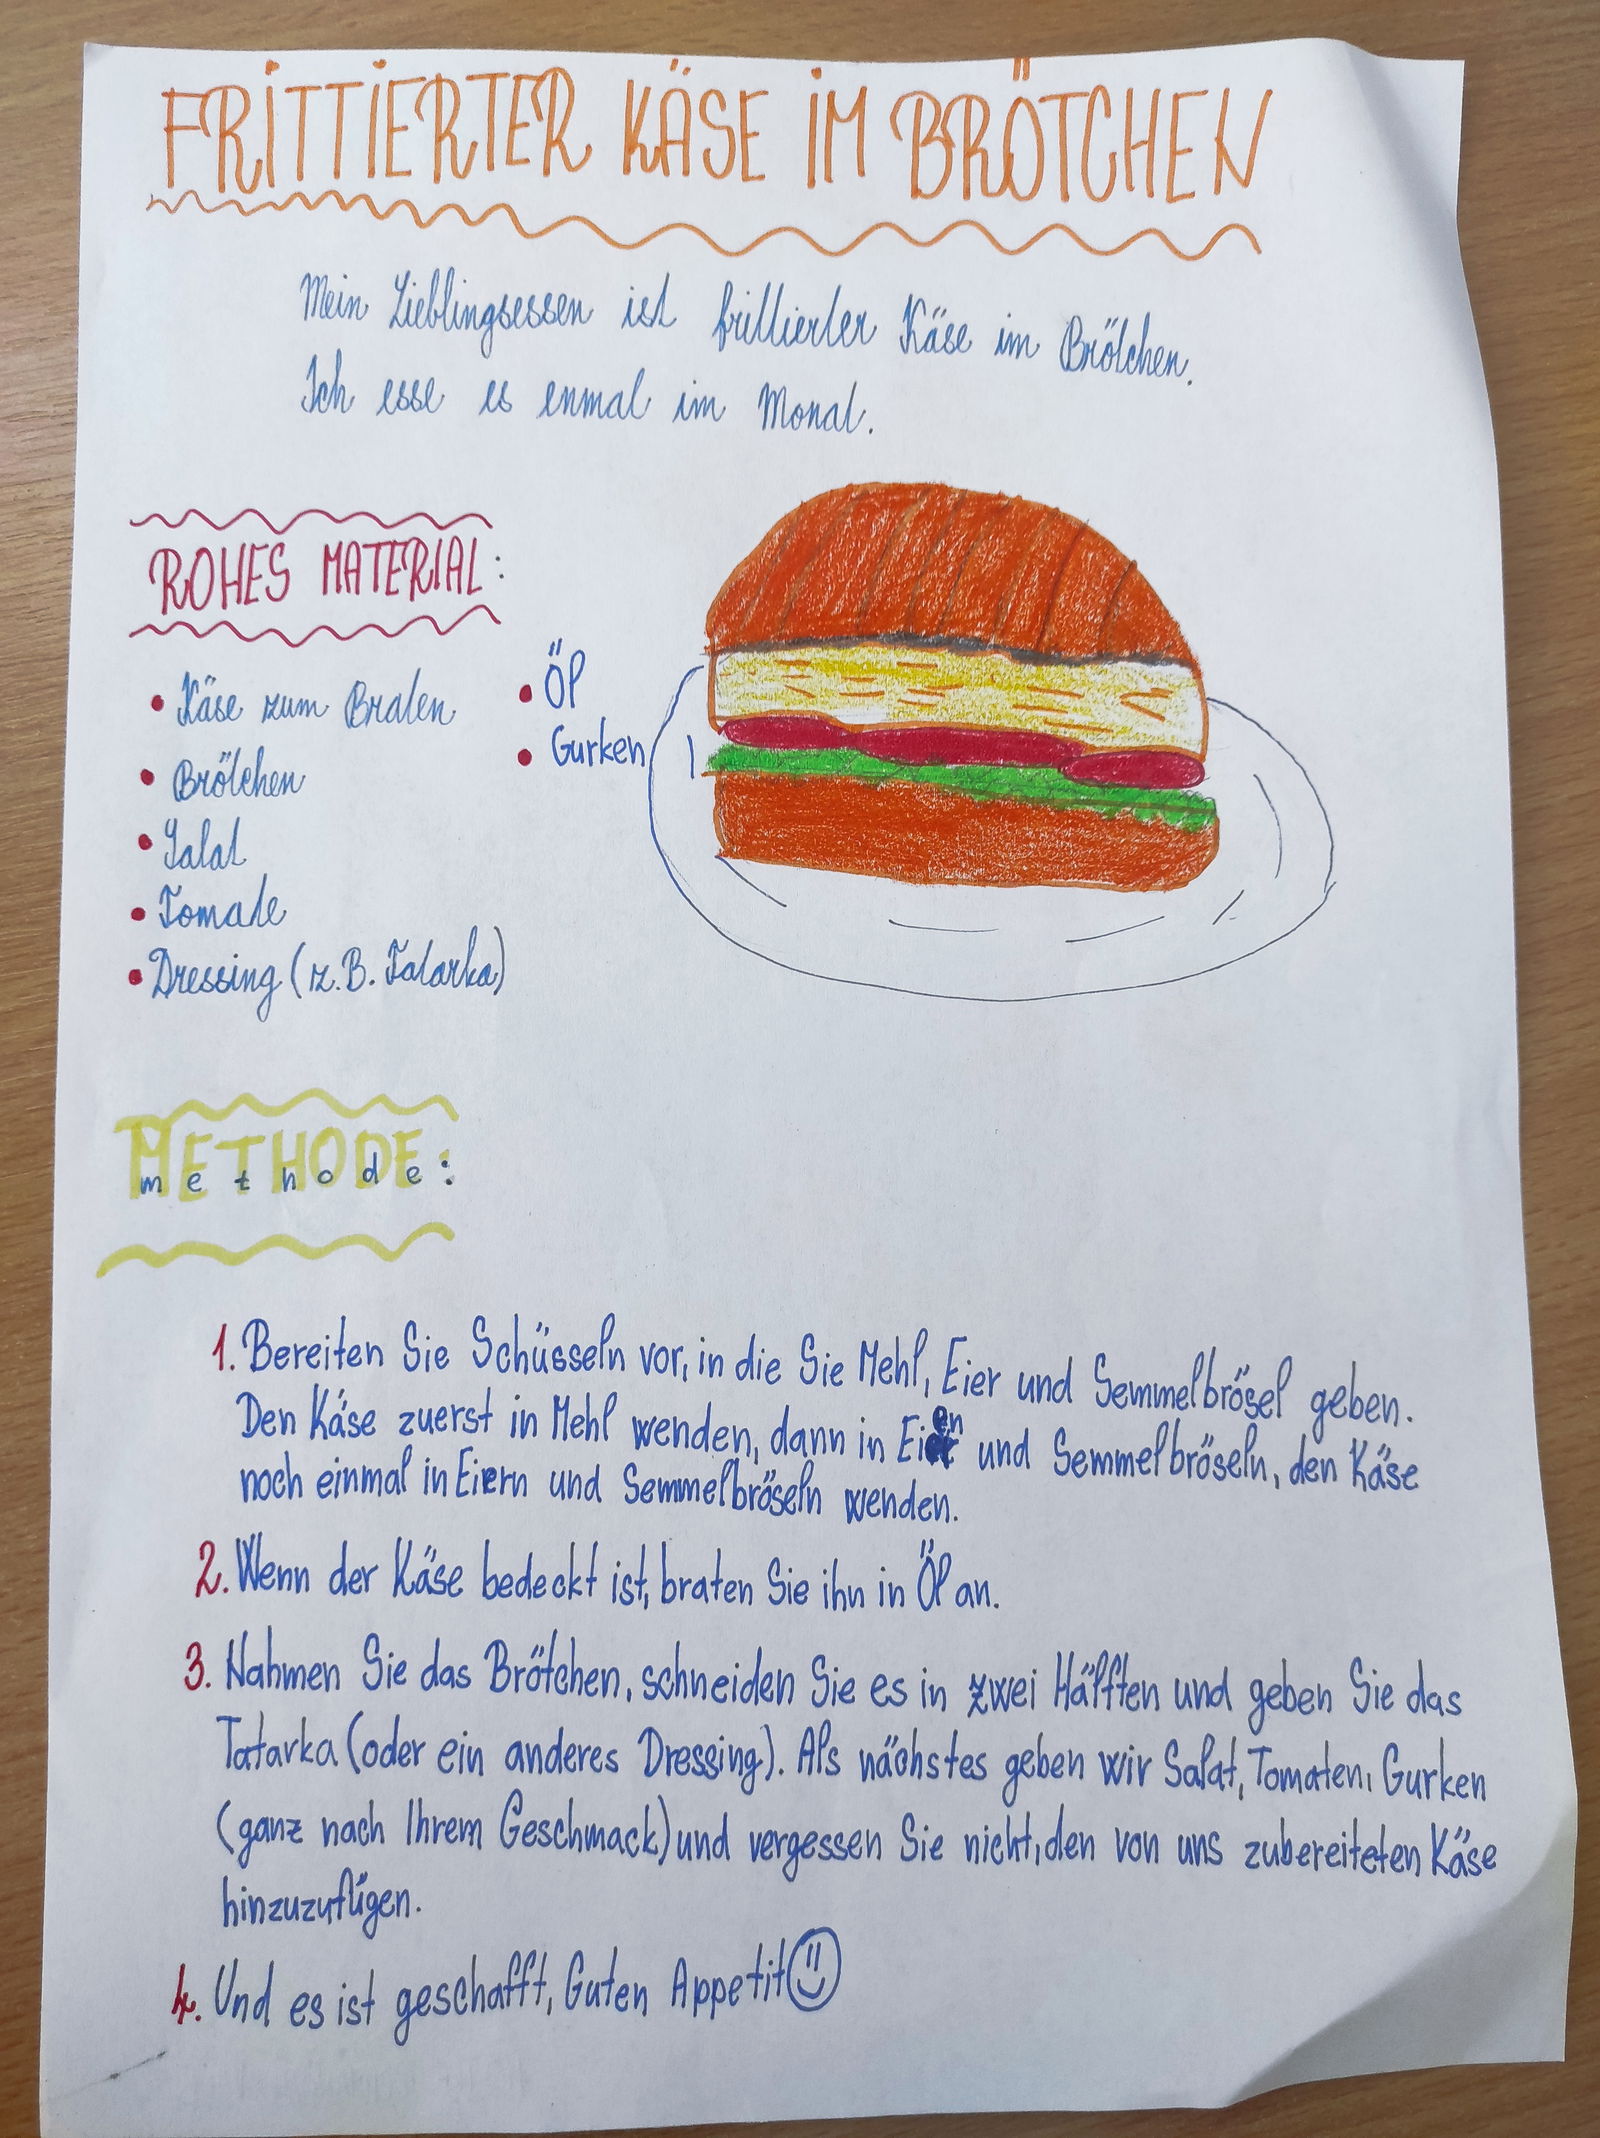 FRITTIERTER KÄSE IM BRÖTCHEN
Mein Lieblingsessen ist frittierter Käse im Brötchen.
Ich esse es enmal im Monat.
ROHES MATERIAL:
• Käse zum Braten
• Brötchen
• Salat
• Tomate
• Dressing (z.B. Tatarka)
• Öl
• Gurken
METHODE:
methode:
1. Bereiten Sie Schüsseln vor, in die Sie Mehl, Eier und Semmelbrösel geben.
Den Käse zuerst in Mehl wenden, dann in Eien und Semmelbröseln, den Käse
noch einmal in Eiern und Semmelbröseln wenden.
2. Wenn der Käse bedeckt ist, braten Sie ihn in Öl an.
3. Nahmen Sie das Brötchen, schneiden Sie es in zwei Hälften und geben Sie das
Tatarka (oder ein anderes Dressing). Als nächstes geben wir Salat, Tomaten, Gurken
(ganz nach Ihrem Geschmack) und vergessen Sie nicht, den von uns zubereiteten Käse
hinzuzufügen.
4. Und es ist geschafft, Guten Appetit